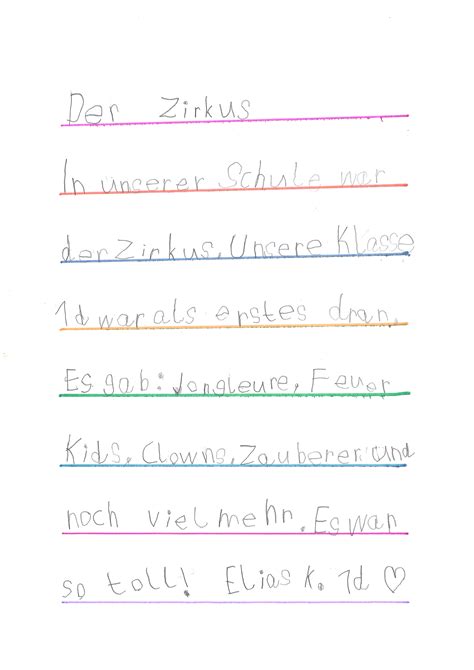 Der Zirkus
In unserer Schule war
der Zirkus. Unsere Klasse
1d war als erstes dran.
Es gab: Jongleure, Feuer
Kids, Clowns, Zauberer und
noch viel mehr. Es war
so toll! Elias K. 1d ♡